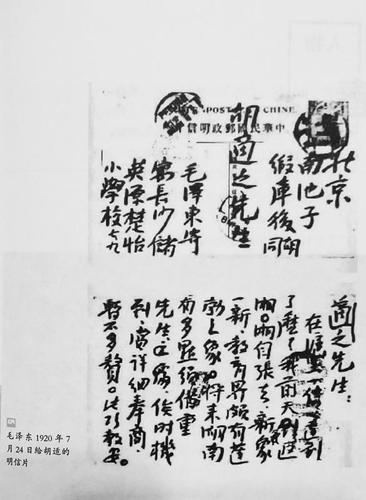 中華民國郵政明信片
北京
南池子
緞庫後胡同
胡適之先生
毛澤東寄
寓長沙儲
英源楚怡
小學校 七、九
適之先生:
在滬上一信達到
了麼?我前天返
湘。湘自張去,氣象
一新,教育界頗有蓬
勃之象。將來湖南
有多點須借重
先生之處,俟時機
到,當詳細奉商,
暫不多贅。此頌教安。
毛泽东 1920 年 7
月 24 日给胡适的
明信片